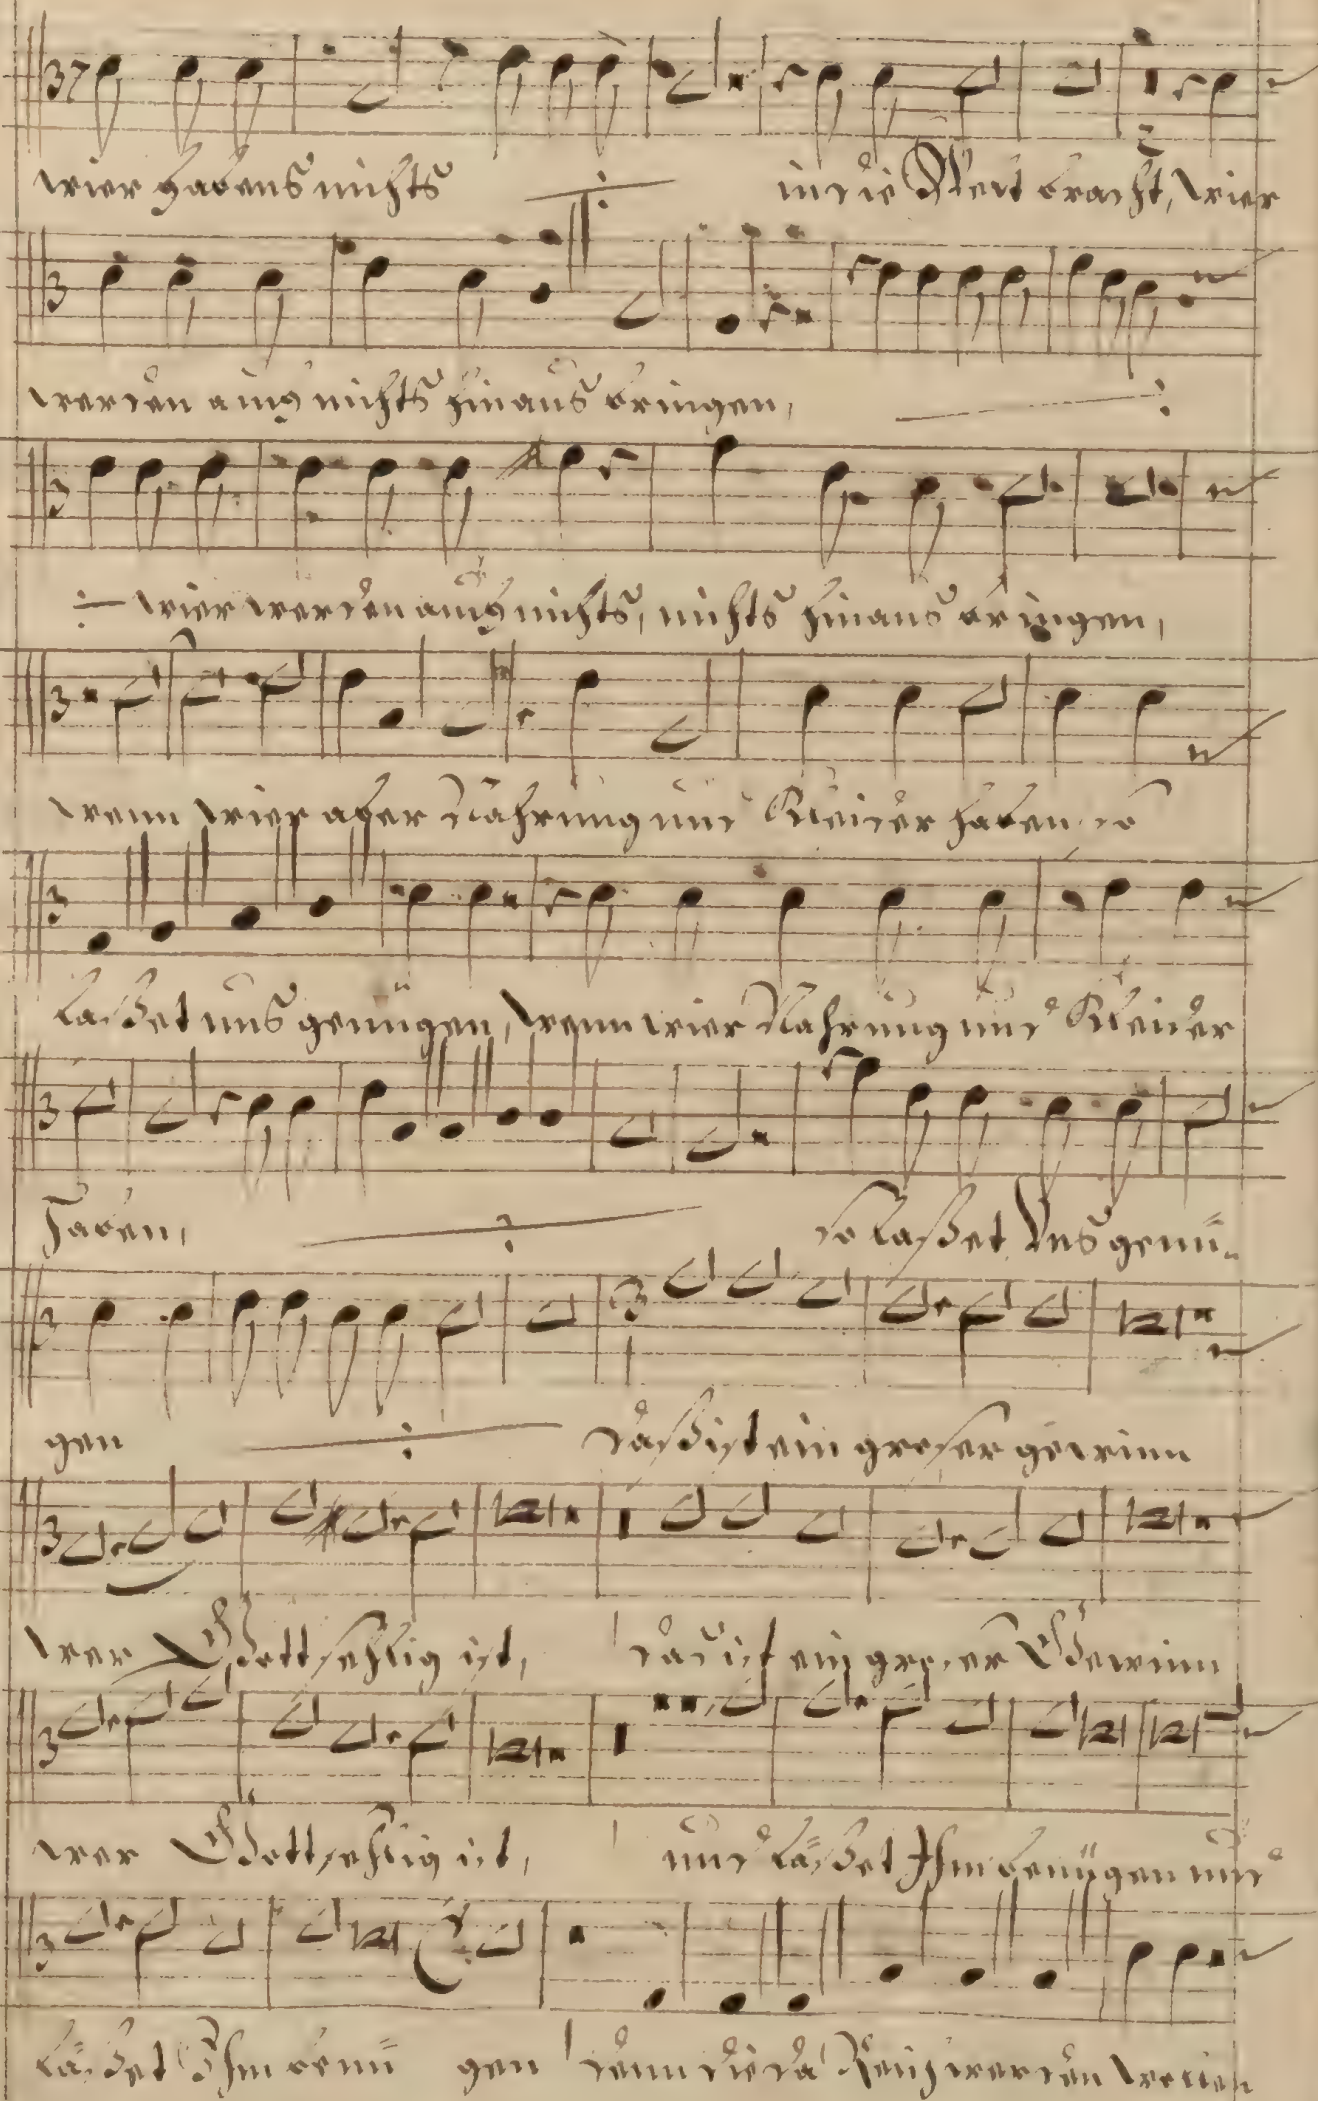 wier habens nichts in die Welt bracht, wier
werden auch nichts hinaus bringen,
wier werden auch nichts, nichts hinaus bringen,
wenn wier aber Nahrung und Kleider haben so
laßet uns genügen, wenn wier Nahrung und Kleider
haben, so laßet Uns genü-
gen daß ist ein groser gewinn
wer Gottsehlig ist, das ist ein groser Gewinn
wer Gottsehlig ist, und läßet Ihm benügen und
läßet Ihm benü gen denn die da Reich werden wollen